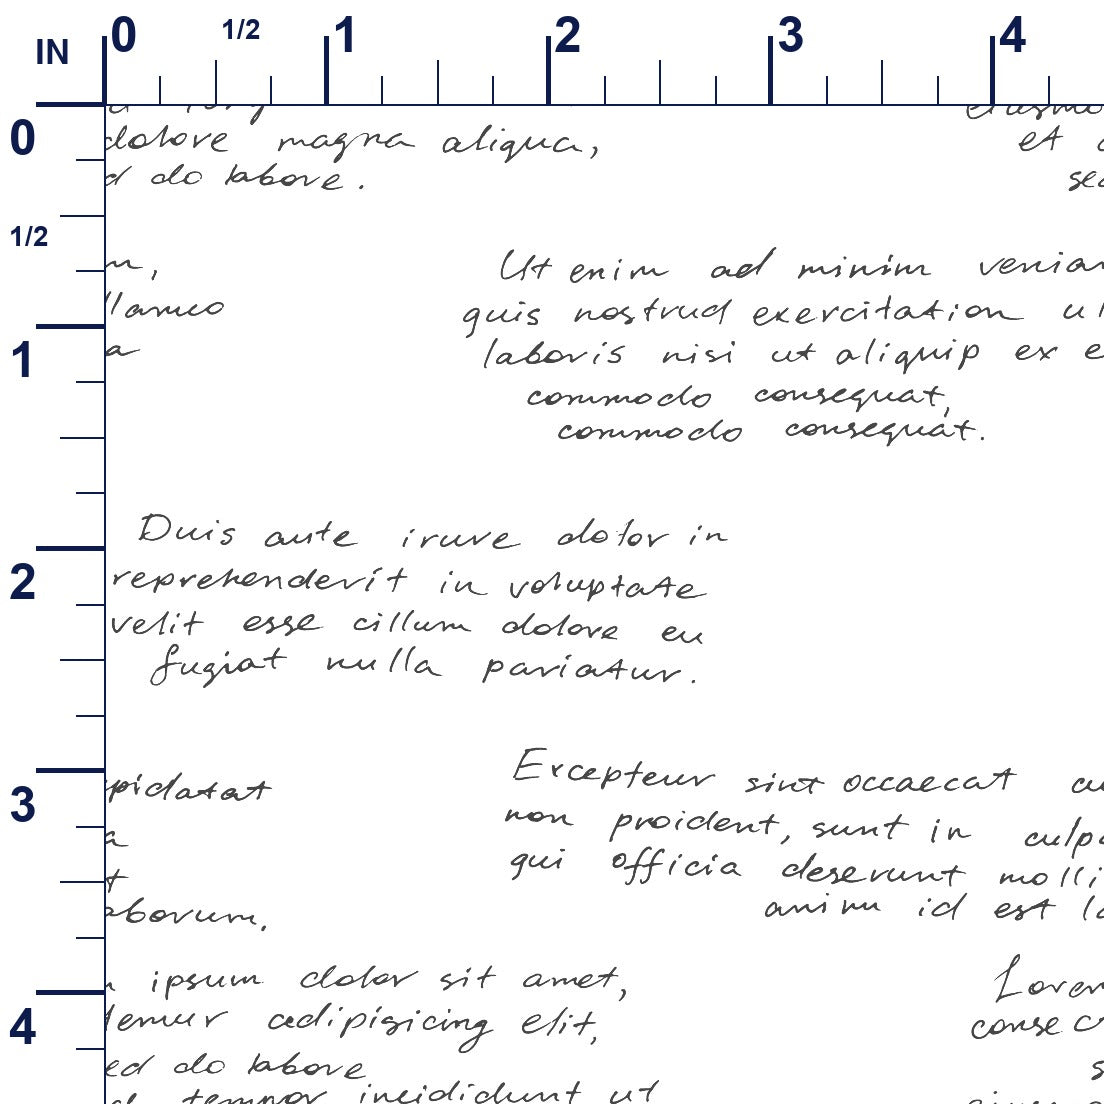 IN 0 1/2 1 2 3 4
0
1/2
1
2
3
4
dolore magna aliqua,
et
d do labore.
Ut enim ad minim veniam
llamco
quis nostrud exercitation ul
a
laboris nisi ut aliquip ex e
commodo consequat,
commodo consequat.
Duis aute irure dolor in
reprehenderit in voluptate
velit esse cillum dolore eu
fugiat nulla pariatur.
Excepteur sint occaecat cu
pidatat
non proident, sunt in culpa
a
qui officia deserunt molli
t
animi id est la
aborum.
ipsum dolor sit amet,
Lorem
adipisicing elit,
consec
ed do labore
tempor incididunt ut